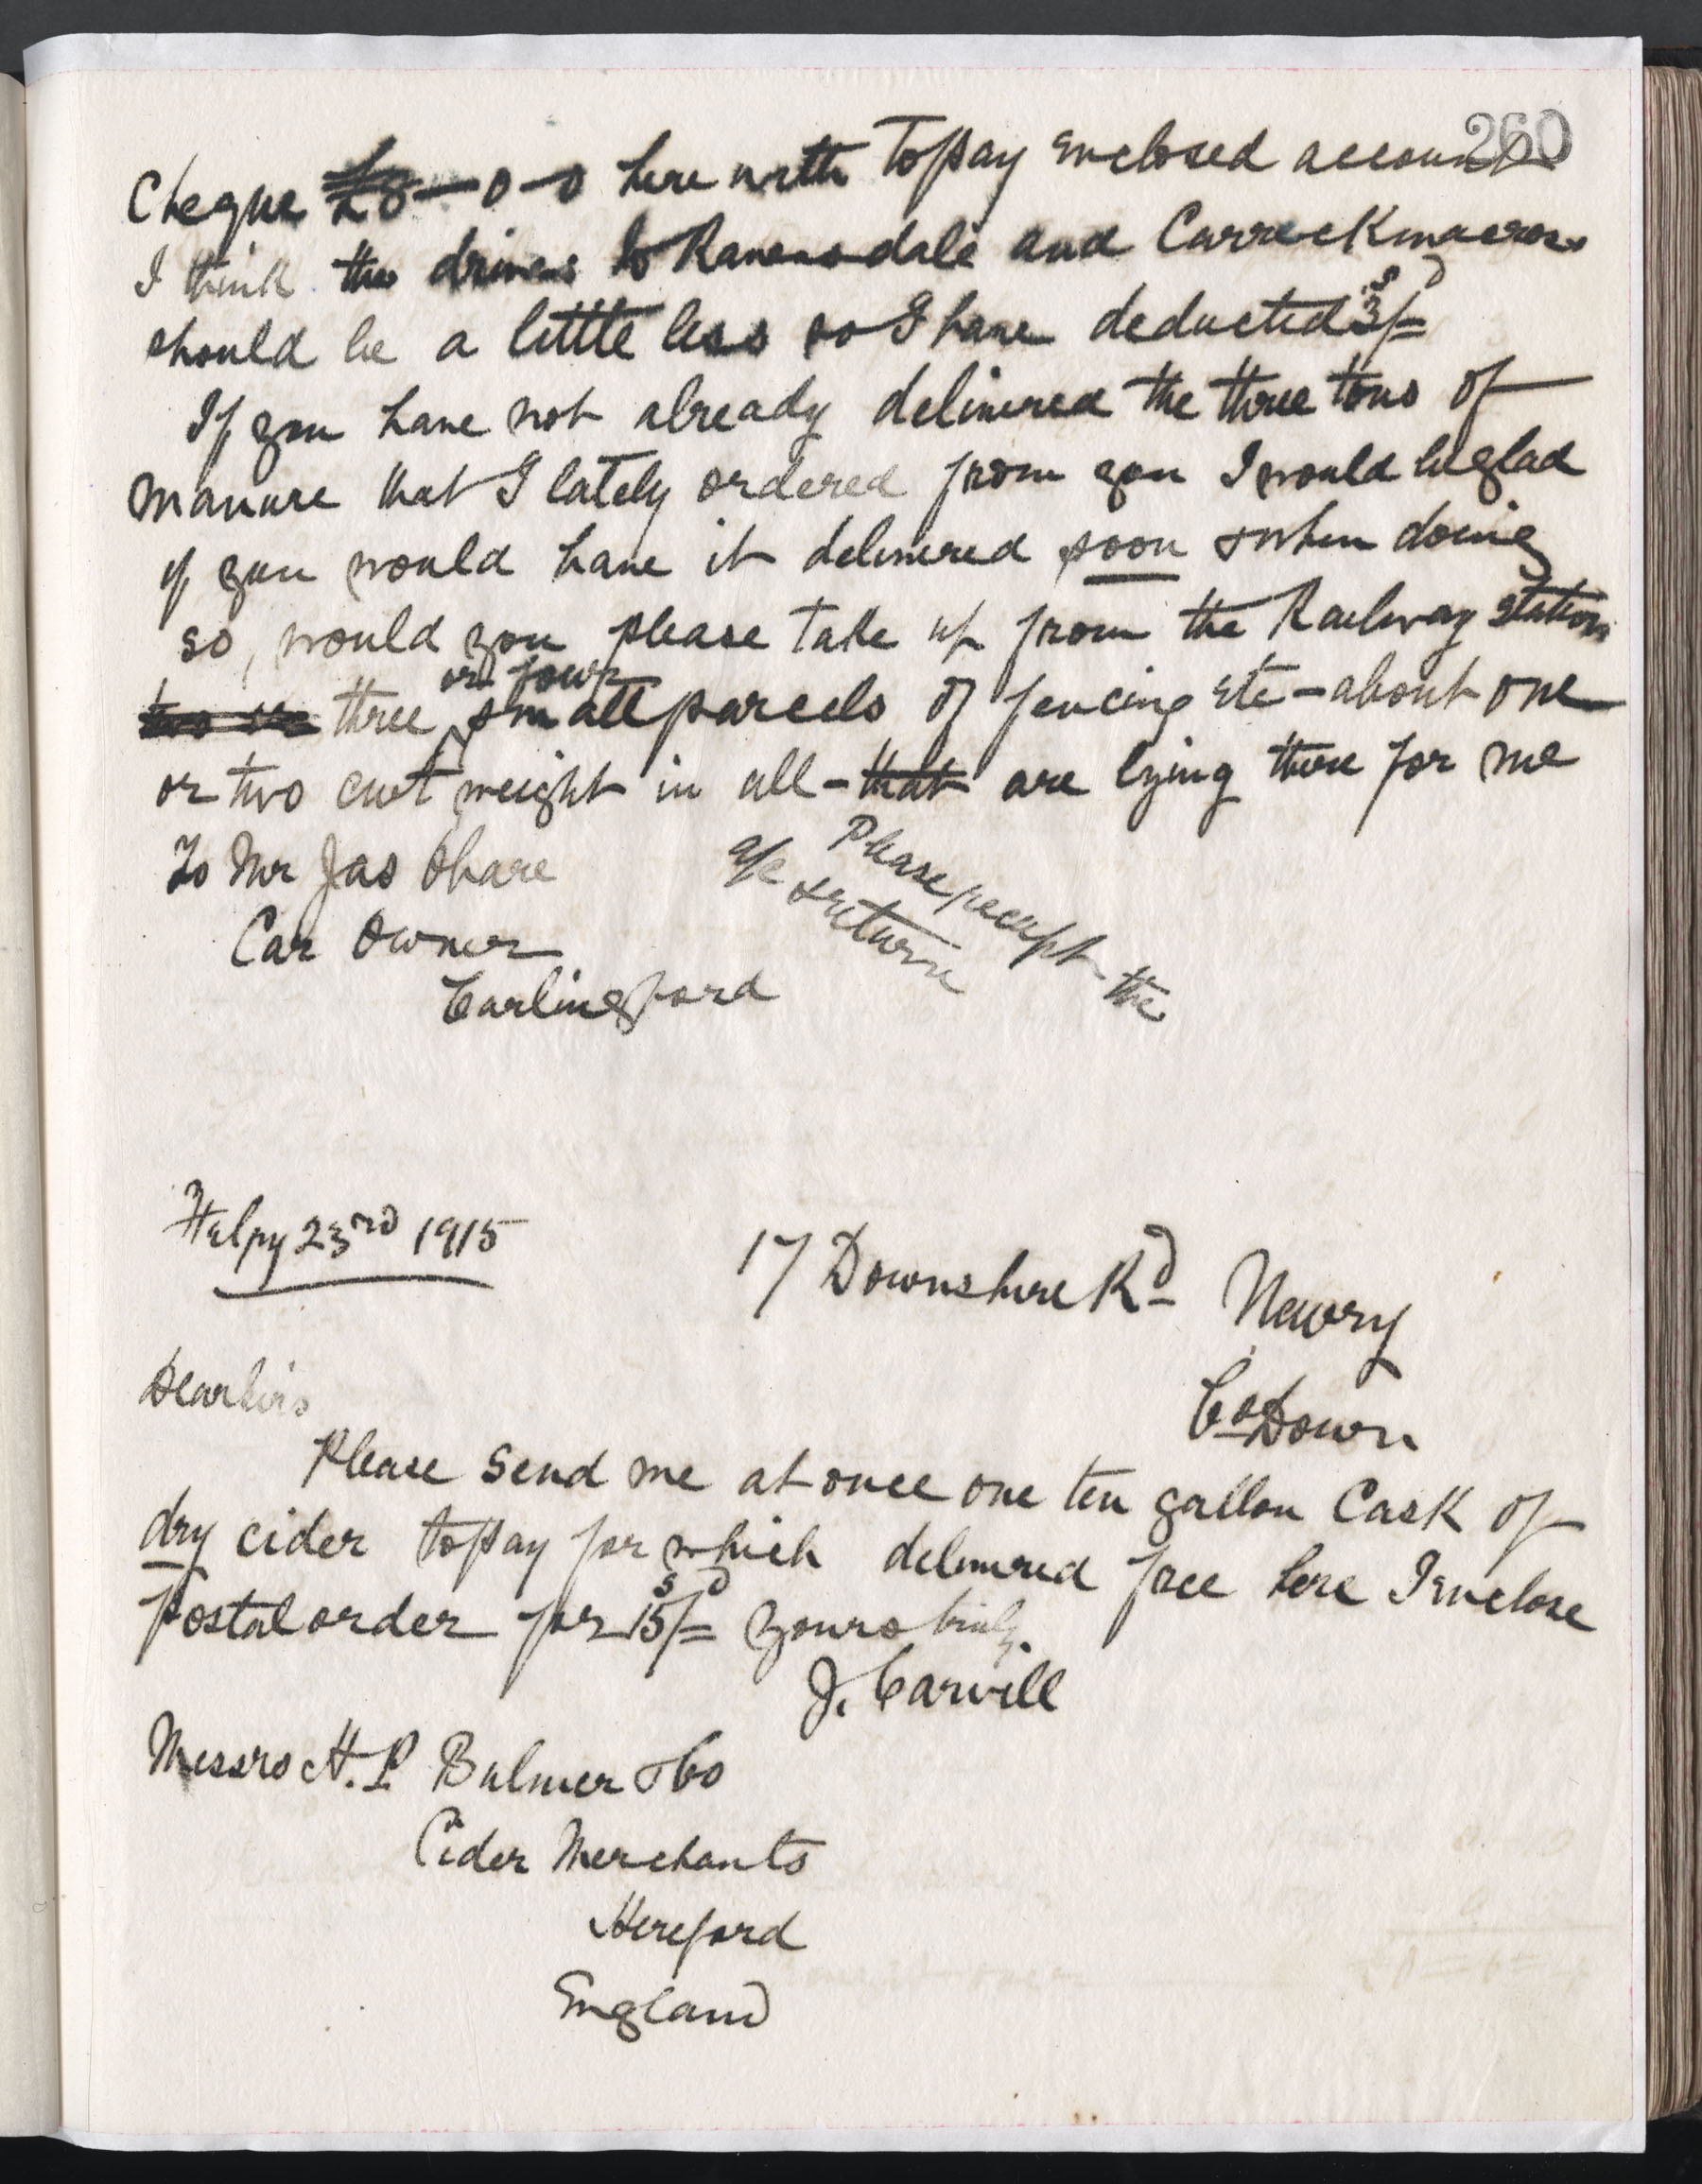 260
Cheque £8-0-0 herewith to pay enclosed account
I think the drives to Ravensdale and Carrickmacross
should be a little less so I have deducted 3s/=d
If you have not already delivered the three tons of
manure that I lately ordered from you I would be glad
if you would have it delivered soon & when doing
so, would you please take up from the Railway station
or four
two or three small parcels of fencing etc - about one
or two cwt weight in all - that are lying there for me
To Mr Jas Ohare
Car Owner
Carlingford
Please receipt the
a/c & return
Feby 23rd 1915
17 Downshire Rd Newry
Co Down
Dear Sirs
Please send me at once one ten gallon Cask of
dry cider to pay for which delivered free here I enclose
postal order for 15s/=d yours truly
J. Carvill
Messrs H. P Bulmer & Co
Cider Merchants
Hereford
England